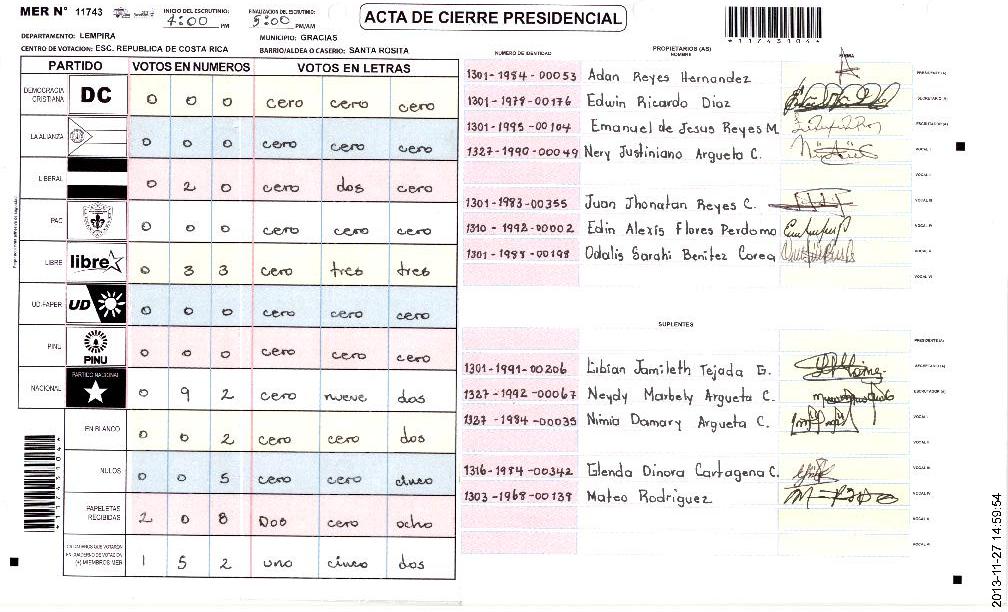 MER N° 11743
INICIO DEL ESCRUTINIO: 4:00 PM
FINALIZACION DEL ESCRUTINIO: 5:00 PM/AM
ACTA DE CIERRE PRESIDENCIAL
*117431044*
DEPARTAMENTO: LEMPIRA
MUNICIPIO: GRACIAS
CENTRO DE VOTACION: ESC. REPUBLICA DE COSTA RICA
BARRIO/ALDEA O CASERIO: SANTA ROSITA
PARTIDO VOTOS EN NUMEROS VOTOS EN LETRAS
DEMOCRACIA CRISTIANA DC 0 0 0 cero cero cero
LA ALIANZA 0 0 0 cero cero cero
LIBERAL 0 2 0 cero dos cero
PAC 0 0 0 cero cero cero
LIBRE libre 0 3 3 cero tres tres
UD-FAPER UD 0 0 0 cero cero cero
PINU PINU 0 0 0 cero cero cero
NACIONAL PARTIDO NACIONAL 0 9 2 cero nueve dos
EN BLANCO 0 0 2 cero cero dos
NULOS 0 0 5 cero cero cinco
PAPELETAS RECIBIDAS 2 0 8 Dos cero ocho
CIUDADANOS QUE VOTARON EN CUADERNO DE VOTACION (+) MIEMBROS MER 1 5 2 uno cinco dos
*117431044*
NUMERO DE IDENTIDAD PROPIETARIOS (AS) NOMBRE FIRMA
1301-1984-00053 Adan Reyes Hernandez PRESIDENTE (A)
1301-1978-00176 Edwin Ricardo Diaz SECRETARIO (A)
1301-1995-00104 Emanuel de Jesus Reyes M. ESCRUTADOR (A)
1327-1990-00049 Nery Justiniano Argueta C. VOCAL I
VOCAL II
1301-1983-00355 Juan Jhonatan Reyes C. VOCAL III
1310-1992-00002 Edin Alexis Flores Perdomo VOCAL IV
Odalis Sarahi Benitez Corea VOCAL V
VOCAL VI
SUPLENTES
PRESIDENTE (A)
1301-1991-00206 Libian Jamileth Tejada G. SECRETARIO (A)
1327-1992-00067 Neydy Marbely Argueta C. ESCRUTADOR (A)
1327-1984-00035 Nimia Damary Argueta C. VOCAL I
VOCAL II
1316-1984-00342 Glenda Dinora Cartagena C. VOCAL III
1303-1968-00139 Mateo Rodriguez VOCAL IV
VOCAL V
VOCAL VI
2013-11-27 14:59:54